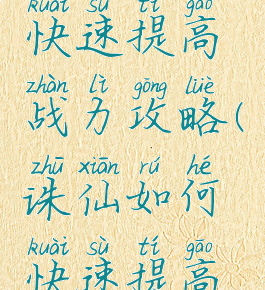 kuài sù tí gāo
快速提高
zhàn lì gōng lüè
战力攻略(
zhū xiān rú hé
诛仙如何
kuài sù tí gāo
快速提高